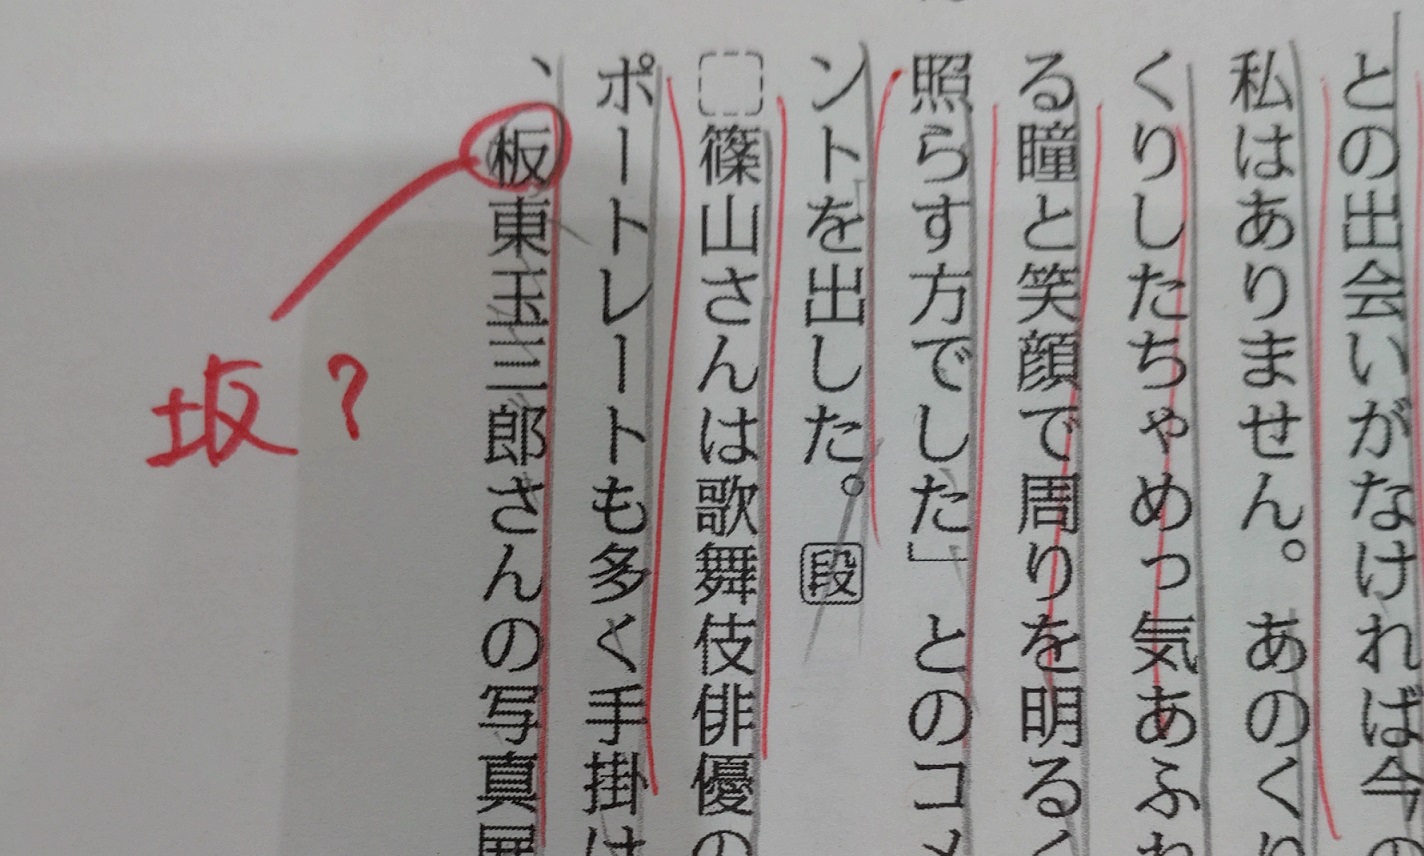 との出会いがなければ今の
私はありません。あのくり
くりしたちゃめっ気あふれ
る瞳と笑顔で周りを明るく
照らす方でした」とのコメ
ントを出した。段
篠山さんは歌舞伎俳優の
ポートレートも多く手掛け
、板東玉三郎さんの写真展
坂?